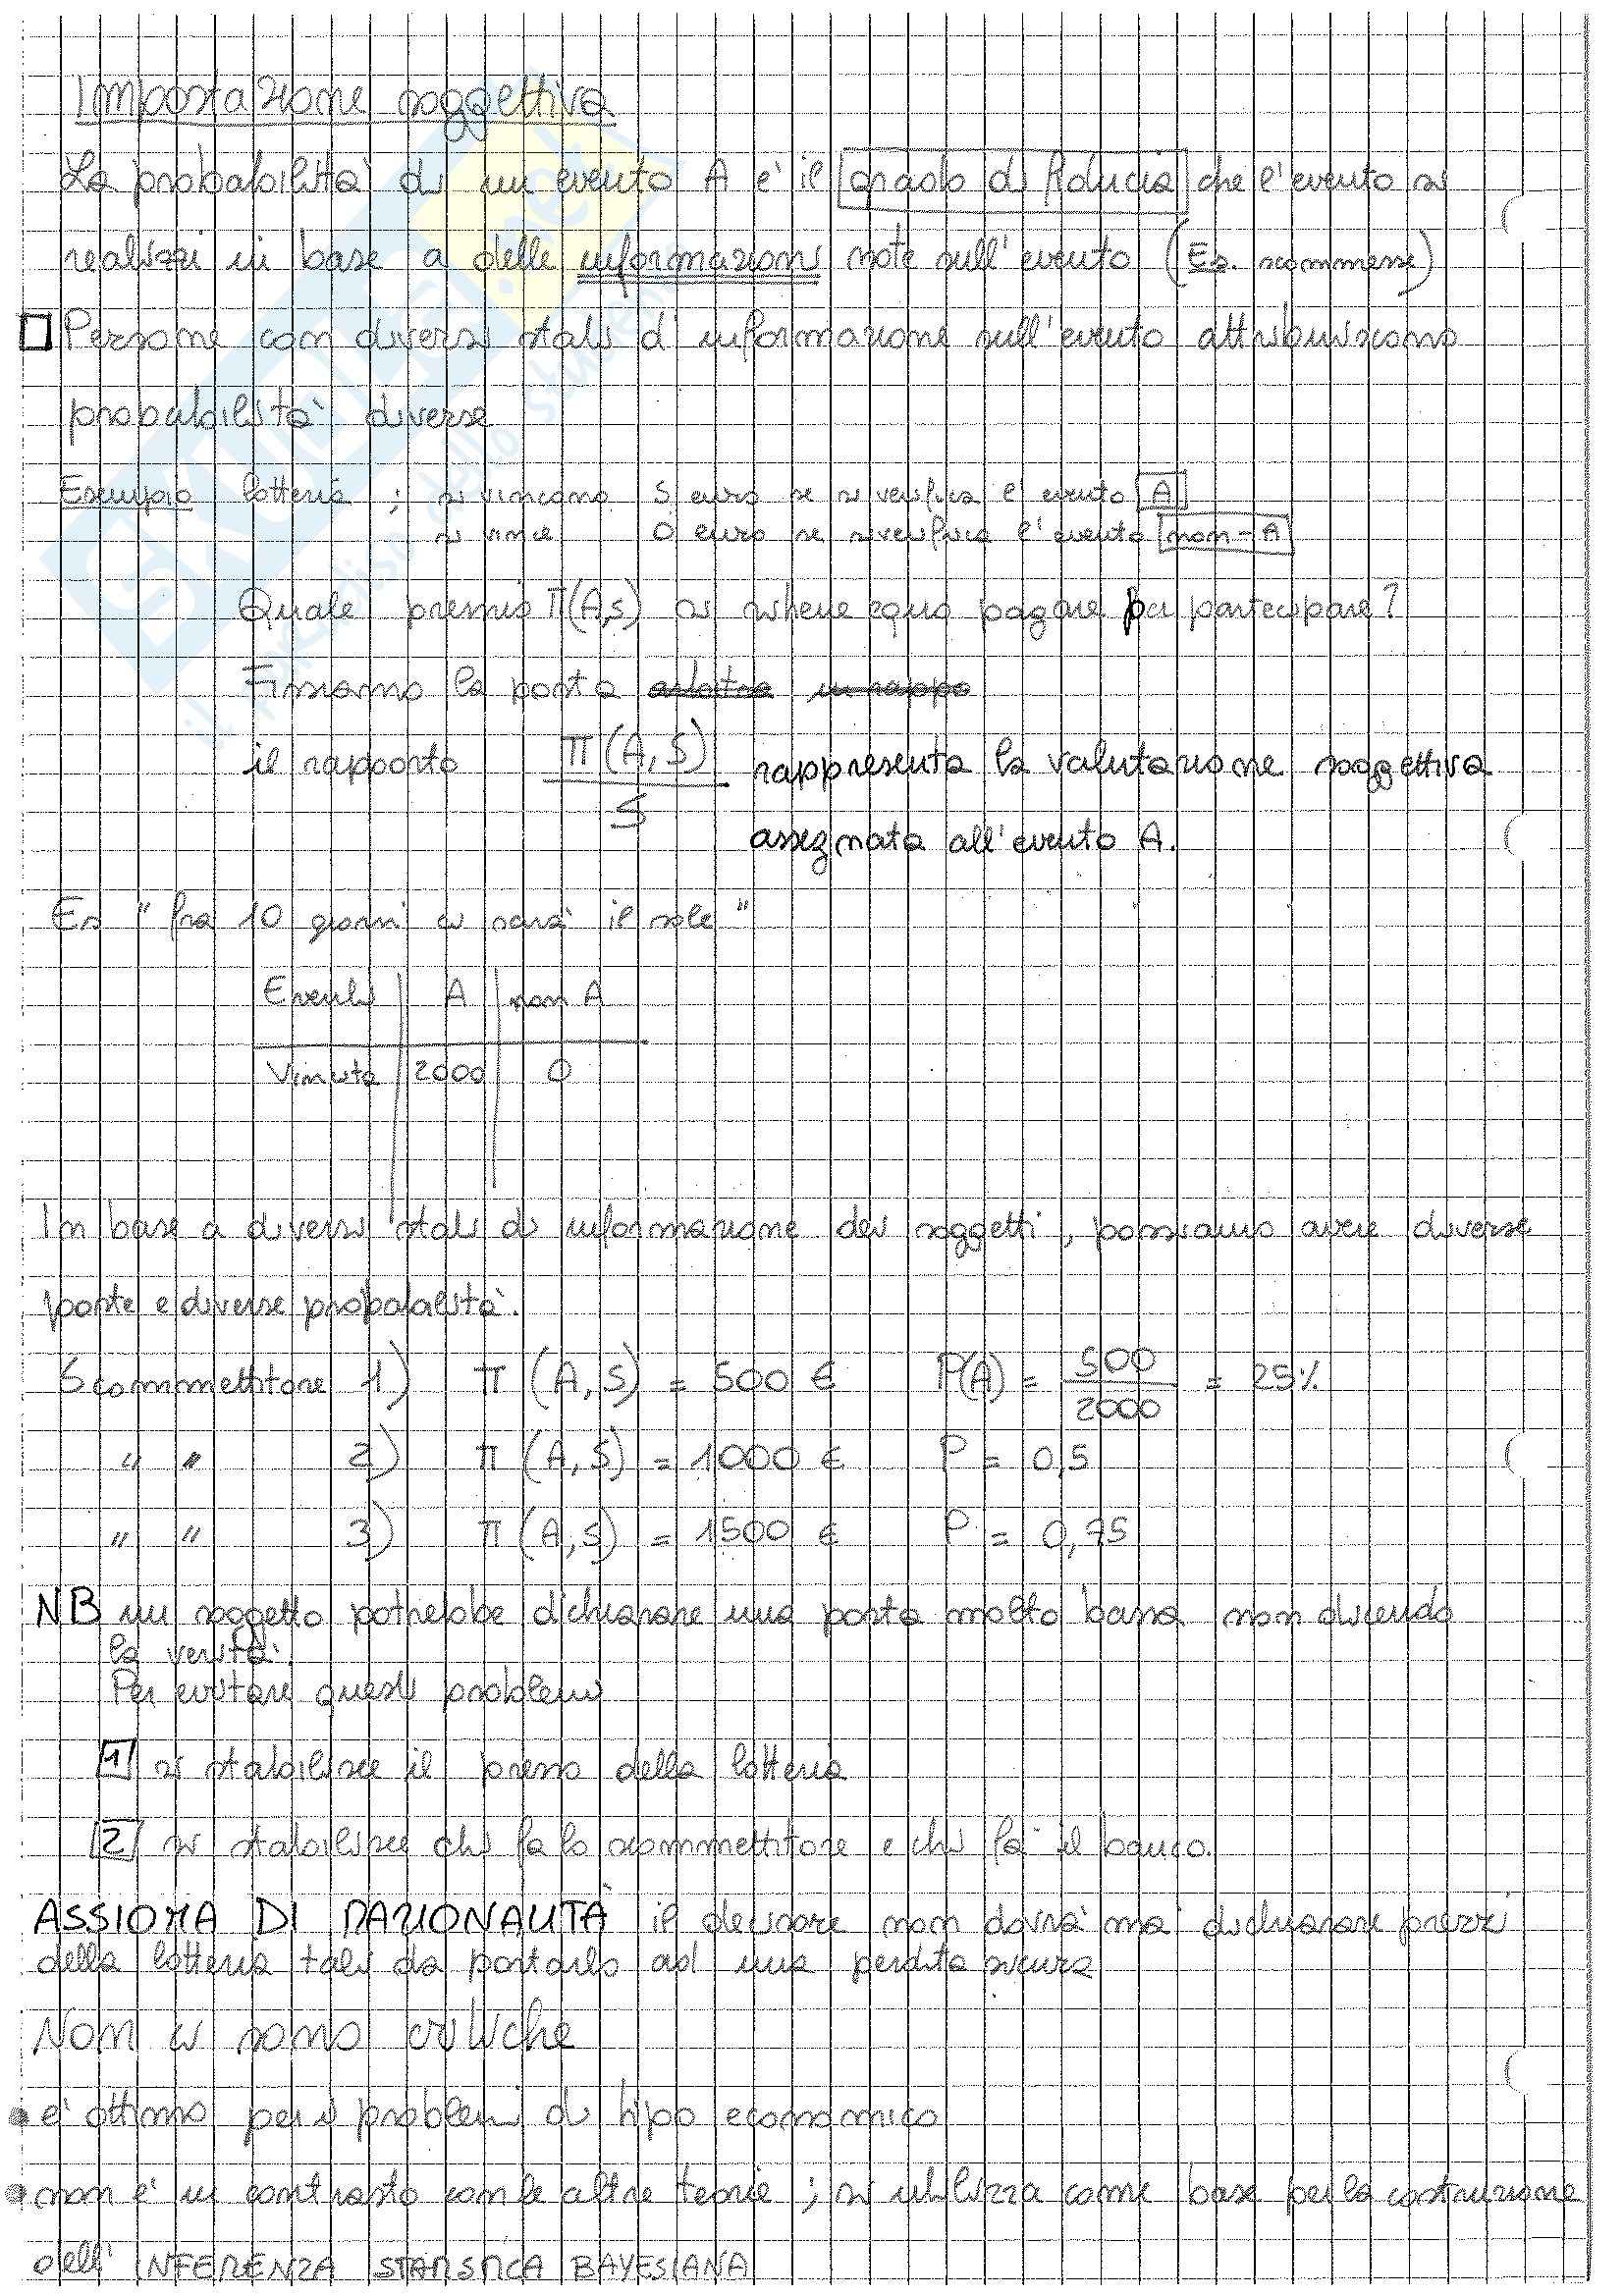 Impostazione soggettiva
La probabilità di un evento A e' il grado di fiducia che l'evento si
realizzi in base a delle informazioni note sull'evento (Es. scommesse)
Persone con diversi stati d'informazione sull'evento attribuiscono
probabilità diverse
Esempio lotteria ; si vincono S euro se si verifica l'evento A
si vince 0 euro se si verifica l'evento non-A
Quale premio π(A,S) si ritiene equo pagare per partecipare?
Fissiamo la posta
il rapporto π(A,S) / S rappresenta la valutazione soggettiva
assegnata all'evento A.
Es "fra 10 giorni ci sarà il sole"
Eventi A non A
Vincita 2000 0
In base a diversi stati di informazione dei soggetti, possiamo avere diverse
poste e diverse probabilità.
Scommettitore 1) π (A,S) = 500 € P(A) = 500 / 2000 = 25%
" " 2) π (A,S) = 1000 € P = 0,5
" " 3) π (A,S) = 1500 € P = 0,75
NB un soggetto potrebbe dichiarare una posta molto bassa non dicendo
la verità.
Per evitare questi problemi
1 si stabilisce il prezzo della lotteria
2 si stabilisce chi fa lo scommettitore e chi fa il banco.
ASSIOMA DI RAZIONALITÀ il decisore non dovrà mai dichiarare prezzi
della lotteria tali da portarlo ad una perdita sicura
Non ci sono critiche
• e' ottimo per i problemi di tipo economico
• non e' in contrasto con le altre teorie ; si utilizza come base per la costruzione
dell' INFERENZA STATISTICA BAYESIANA